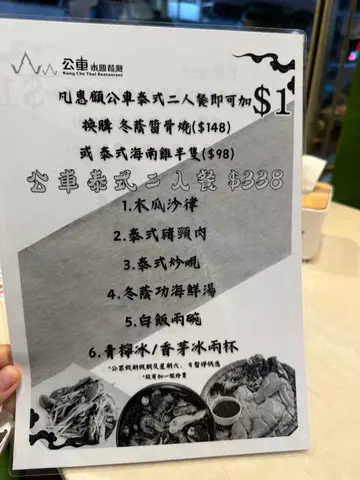 公車 泰國餐廳
Kung Che Thai Restaurant
凡惠顧公車泰式二人餐即可加$1
換購 冬蔭醬骨燒($148)
或 泰式海南雞半隻($98)
公車泰式二人餐 $338
1.木瓜沙律
2.泰式豬頸肉
3.泰式炒蜆
4.冬蔭功海鮮湯
5.白飯兩碗
6.青檸冰/香茅冰兩杯
*設有加一服務費